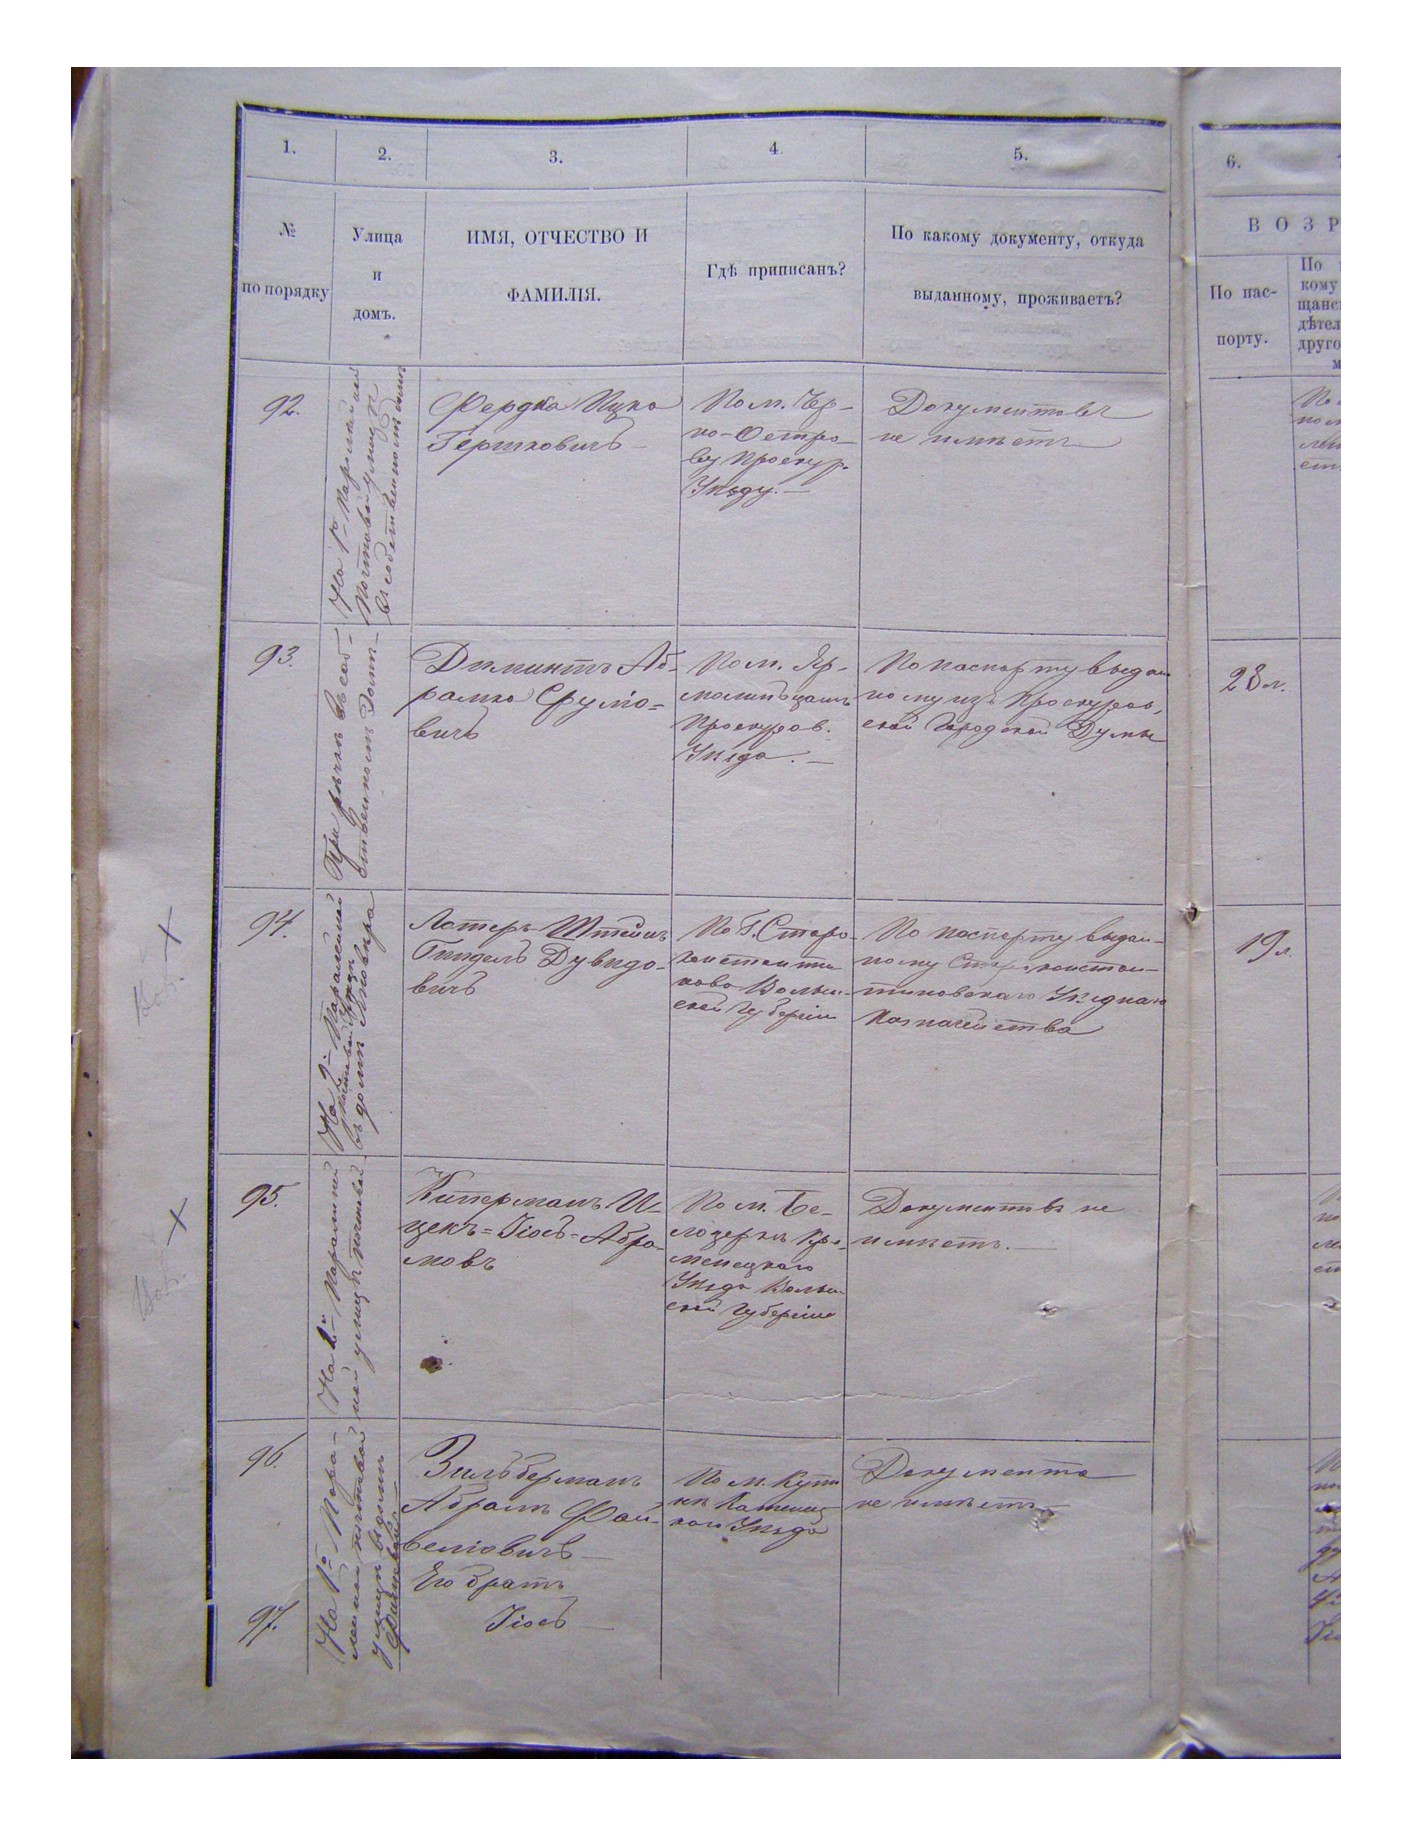 1.
2.
3.
4.
5.
6.
№
по порядку
Улица
и
домъ.
ИМЯ, ОТЧЕСТВО И
ФАМИЛІЯ.
Гдѣ приписанъ?
По какому документу, откуда
выданному, проживаетъ?
ВОЗР
По пас-
порту.
По
кому
щанс
дѣтел
друго
м
92.
На 1й Паралельной
Почтовой улицѣ
въ собственномъ домѣ
Фердка Ицко
Гершковичъ
По м. Чер-
но-Остро-
ву Проскур.
Уѣзду.
Документовъ
не имѣетъ
93.
При рѣчкѣ въ соб-
ственномъ домѣ
Аб-
рамко Сруло-
вичъ
По м. Яр-
молинѣцамъ
Проскуров.
Уѣзда.
По паспорту выдан
ному изъ Проскуров.
ской Городской Думы
23 л.
94.
На 2й Паралельной
почтовой улицѣ
въ домѣ
Лотеръ Штейнъ
Дувидо-
вичъ
По Г. Старо-
константи
нова Волын-
ской Губерніи
По паспорту выдан-
ному Староконстан-
тиновскаго Уѣзднаго
Казначейства
19 л.
95.
На 2й Паралель
ной улицѣ почтовой
Киперманъ И-
цекъ=Іось-Абра-
мовъ
По м. Бе-
лозеркѣ Кре-
менецкаго
Уѣзда Волын
ской Губерніи
Документовъ не
имѣетъ.
96.
На 1й Пара-
лельной почтовой
улицѣ въ домѣ
Зильберманъ
Абрамъ Фай-
веліовичъ
По м. Купи
нѣ Каменец
каго Уѣзда
Документа
не имѣетъ
97.
Его братъ
Іось